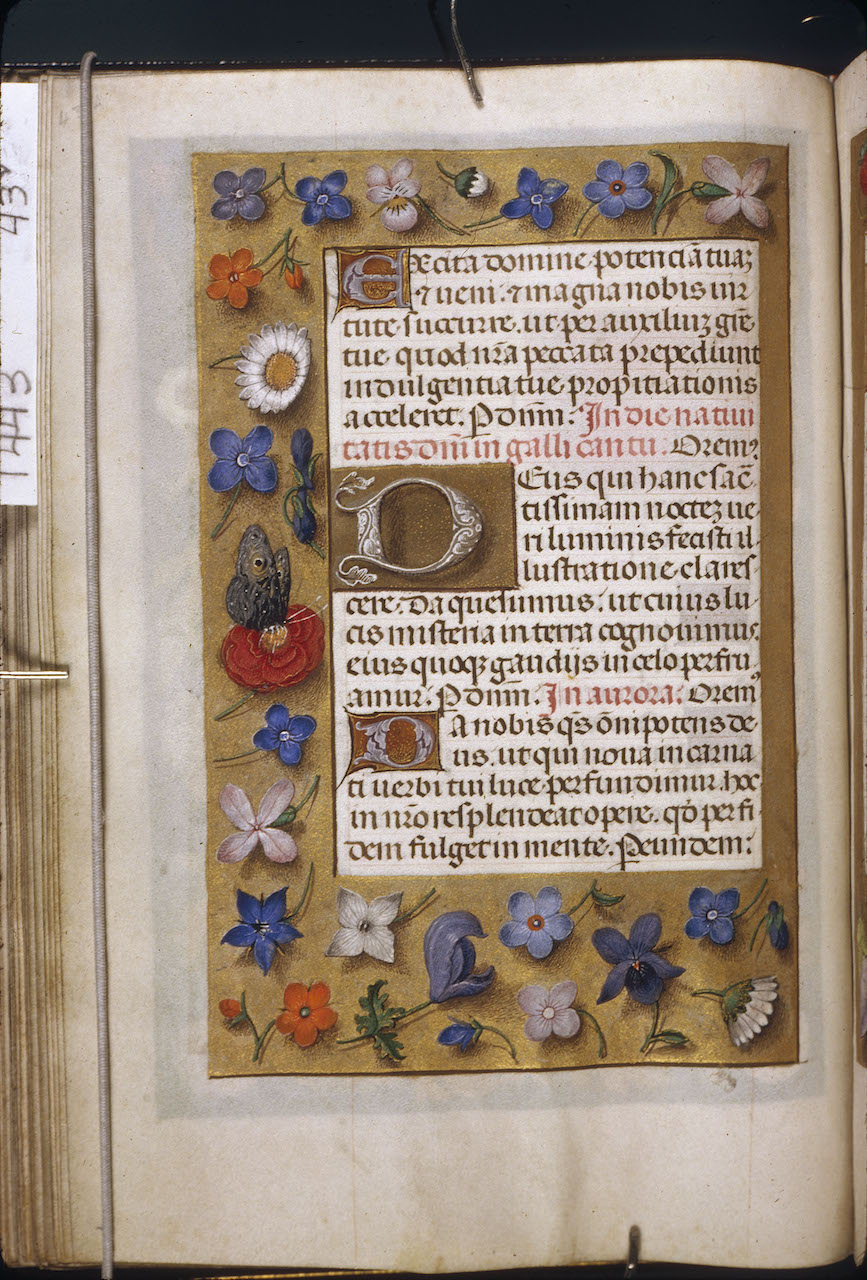 Excita domine potenciã tuaꝫ
⁊ ueni. ⁊ magna nobis uir
tute succurre. ut per auxiliuꝫ grẽ
tue quod nr̃a peccata prepediunt
indulgentia tue propitiationis
acceleret. P dnm̃. In die natiui
tatis dñi in galli cantu. Orem9
Deus qui hanc sac̃
tissimam noctez ue
ri luminis fecisti il
lustratione clares
cere. da quesumus. ut cuius lu
cis misteria in terra cognouimus.
eius quoqꝫ gaudijs in celo perfru
amur. P dnm̃. In aurora. Orem9
Da nobis qs̃ om̃ipotens de
us. ut qui noua incarna
ti uerbi tui luce perfundimur. hoc
in nr̃o resplendeat opere. qđ per fi
dem fulget in mente. P eundem.
43v
1443